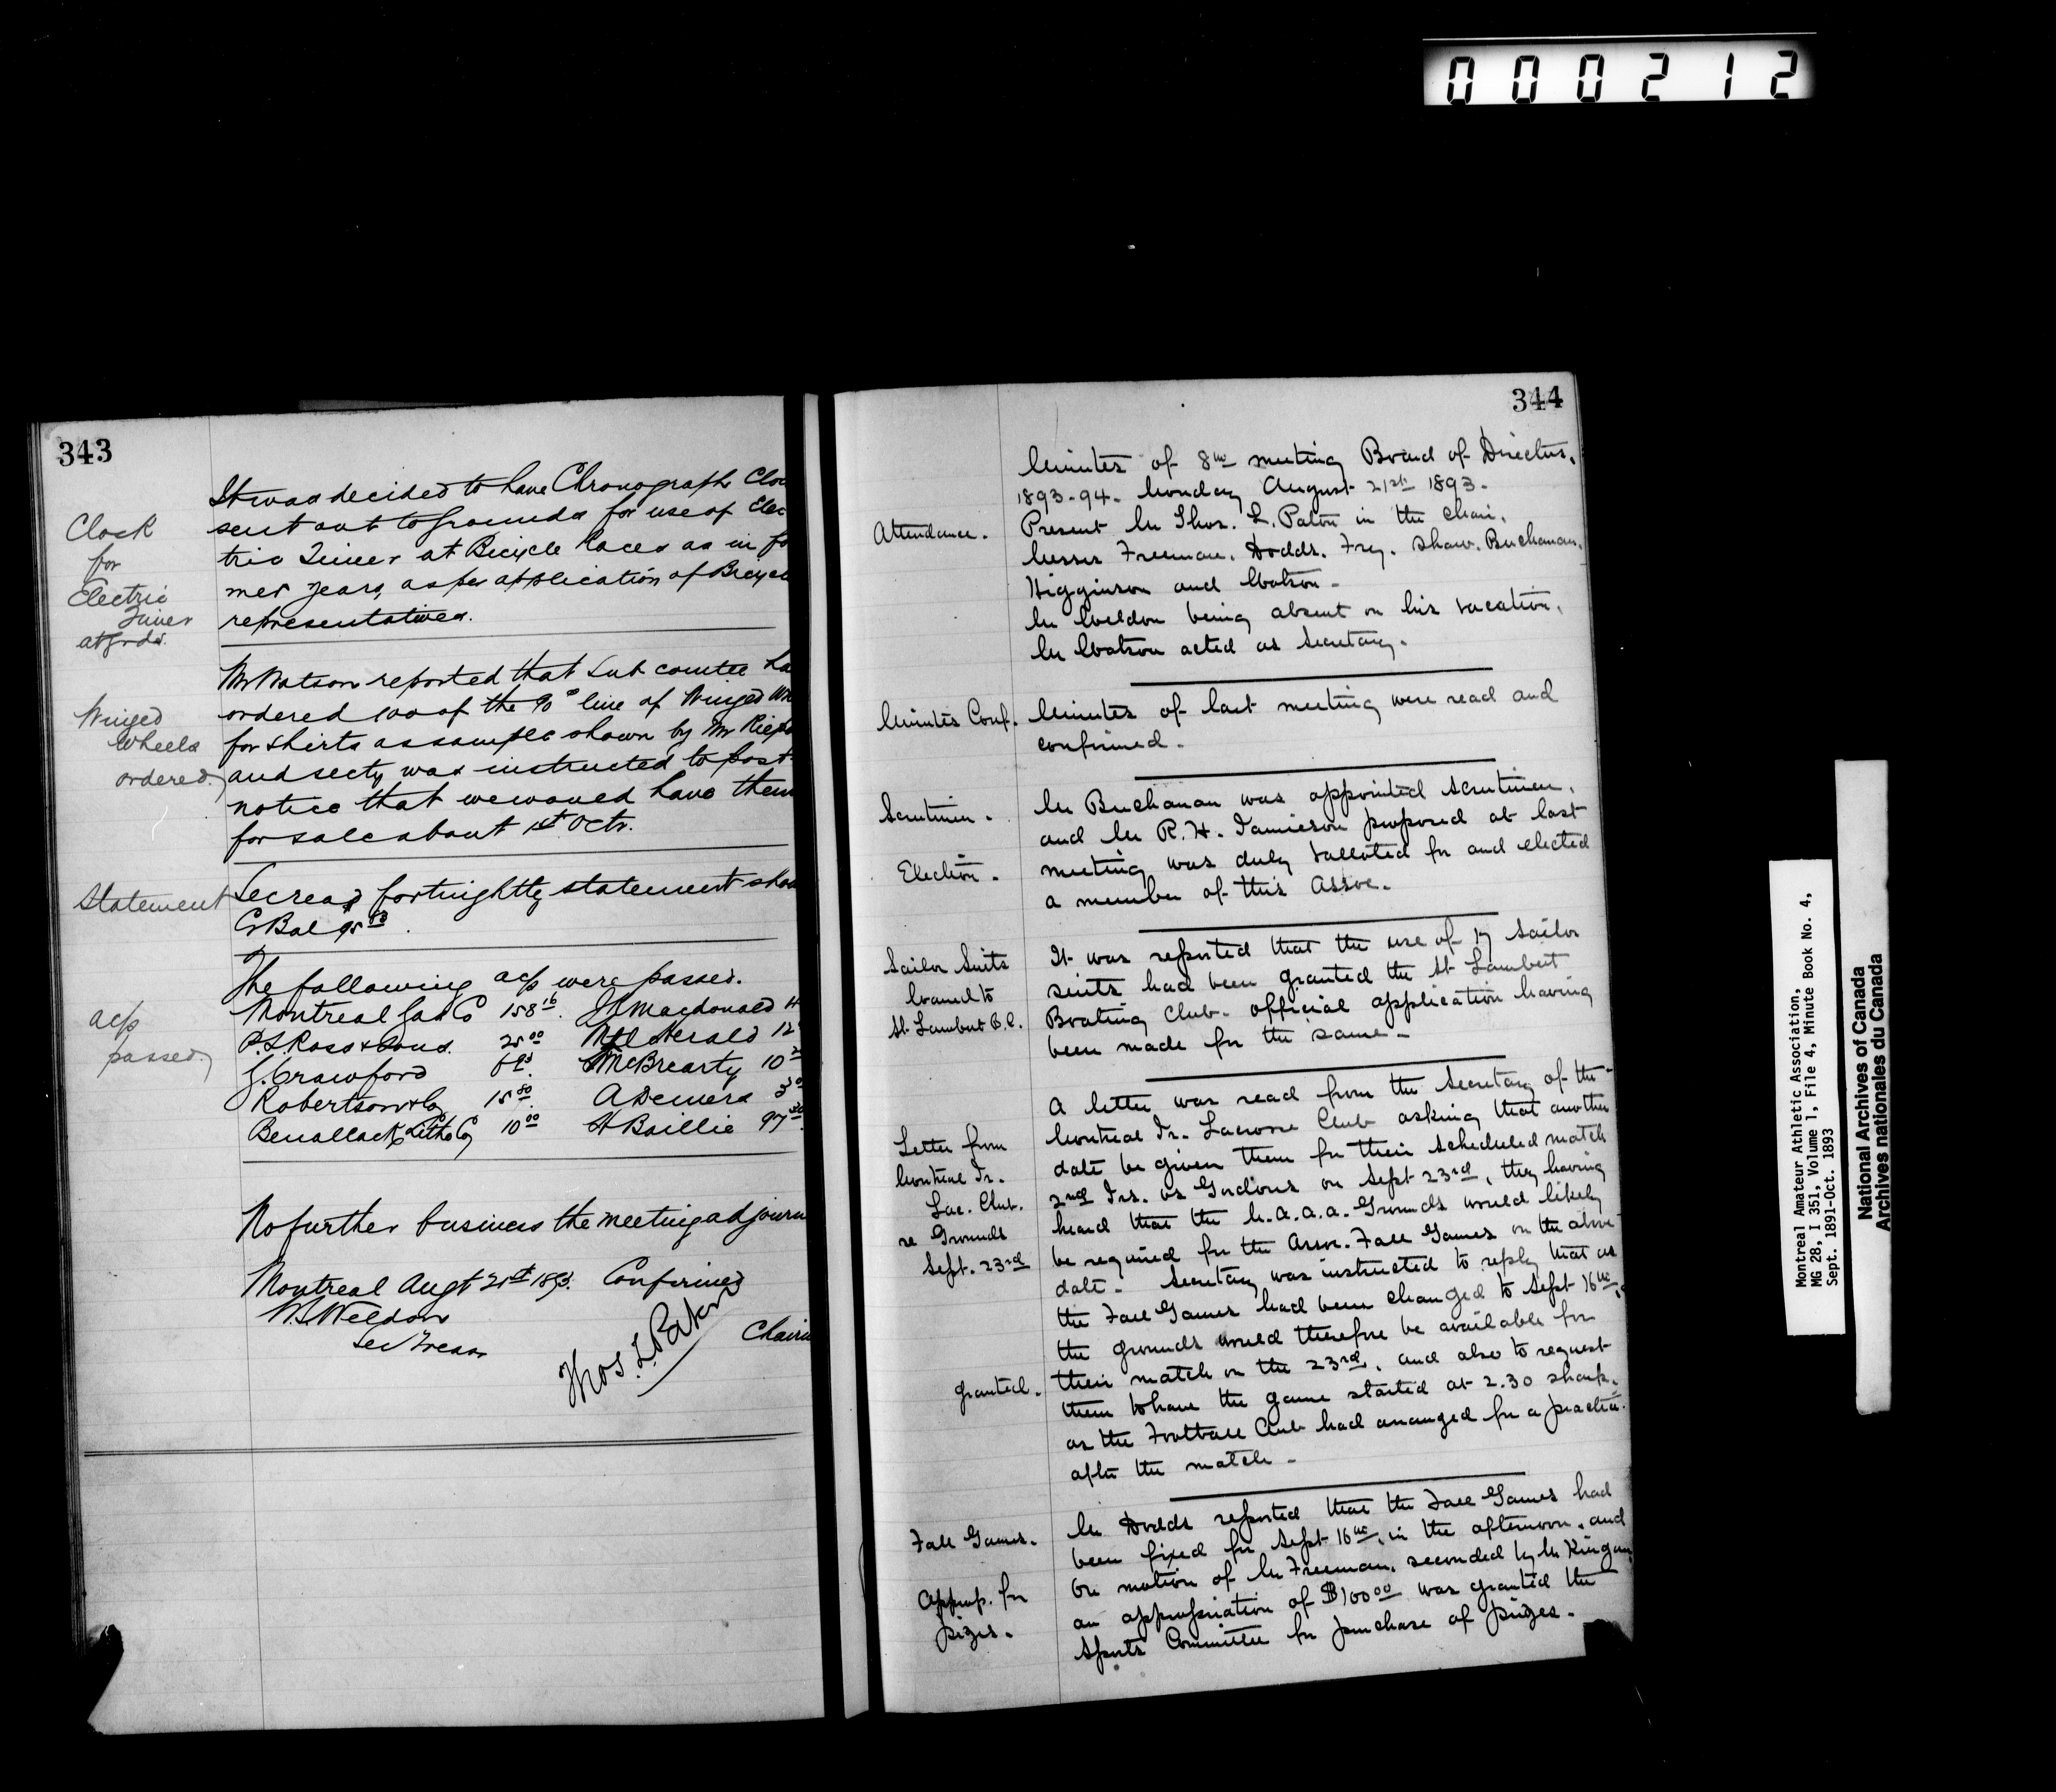 000212
343
It was decided to have Chronograph Cloc
sent out to Grounds for use of Elec
tric Timer at Bicycle Races as in fo
mer years, as per application of Bicycle
representatives.
Clock
for
Electric
Timer
at Grds.
Mr Watson reported that Sub comtee ha
ordered 100 of the 90c line of Winged Wh
for shirts as sample shown by Mr
and secty was instructed to post
notice that we would have them
for sale about 1st Octr.
Winged
Wheels
ordered
Sec read fortnightly statement show
Cr Bal
Statement
The following a/cs were passed.
Montreal Gas Co 158 16 J H Macdonald
P.S. Ross & Sons. 25 00 Mtl Herald 12
J. Crawford McBrearty 10
Robertson & Co 15 80 A Demers 3
Benallack Litho Co 10 00 H Baillie 97
a/cs
passed
No further business the meeting adjourn
Montreal Augt 21st 1893. Confirmed
W.S. Weldon
Sec Treas
Thos. L. Paton
Chairm
344
Minutes of 8th meeting Board of Directors.
1893-94. Monday August 21st 1893.
Attendance.
Present Mr Thos. L. Paton in the chair,
Messrs Freeman. Dodds. Fry. Shaw. Buchanan.
Higginson and Watson -
Mr Weldon being absent on his vacation,
Mr Watson acted as Secretary.
Minutes Conf.
Minutes of last meeting were read and
confirmed.
Scrutineer.
Mr Buchanan was appointed scrutineer,
and Mr R. H. Jamieson proposed at last
Election.
meeting was duly balloted for and elected
a member of this Assoc.
Sailor Suits
loaned to
St. Lambert B.C.
It was reported that the use of 17 sailor
suits had been granted the St Lambert
Boating Club. official application having
been made for the same -
A letter was read from the Secretary of the
Montreal Jr. Lacrosse Club asking that another
date be given them for their scheduled match
2nd Jrs. vs Gordons on Sept 23rd, they having
heard that the M.A.A.A. Grounds would likely
be required for the Assoc. Fall Games on the above
date - Secretary was instructed to reply that as
the Fall Games had been changed to Sept 16th,
the grounds would therefore be available for
their match on the 23rd, and also to request
them to have the game started at 2.30 sharp.
as the Football Club had arranged for a practice
after the match -
Letter from
Montreal Jr.
Lac. Club.
re Grounds
Sept. 23rd
granted.
Fall Games.
Mr Dodds reported that the Fall Games had
been fixed for Sept 16th, in the afternoon, and
On motion of Mr Freeman, seconded by Mr Kingan,
an appropriation of $100 00 was granted the
Sports Committee for purchase of prizes.
Approp. for
prizes.
Montreal Amateur Athletic Association,
MG 28, I 351, Volume 1, File 4, Minute Book No. 4,
Sept. 1891-Oct. 1893
National Archives of Canada
Archives nationales du Canada